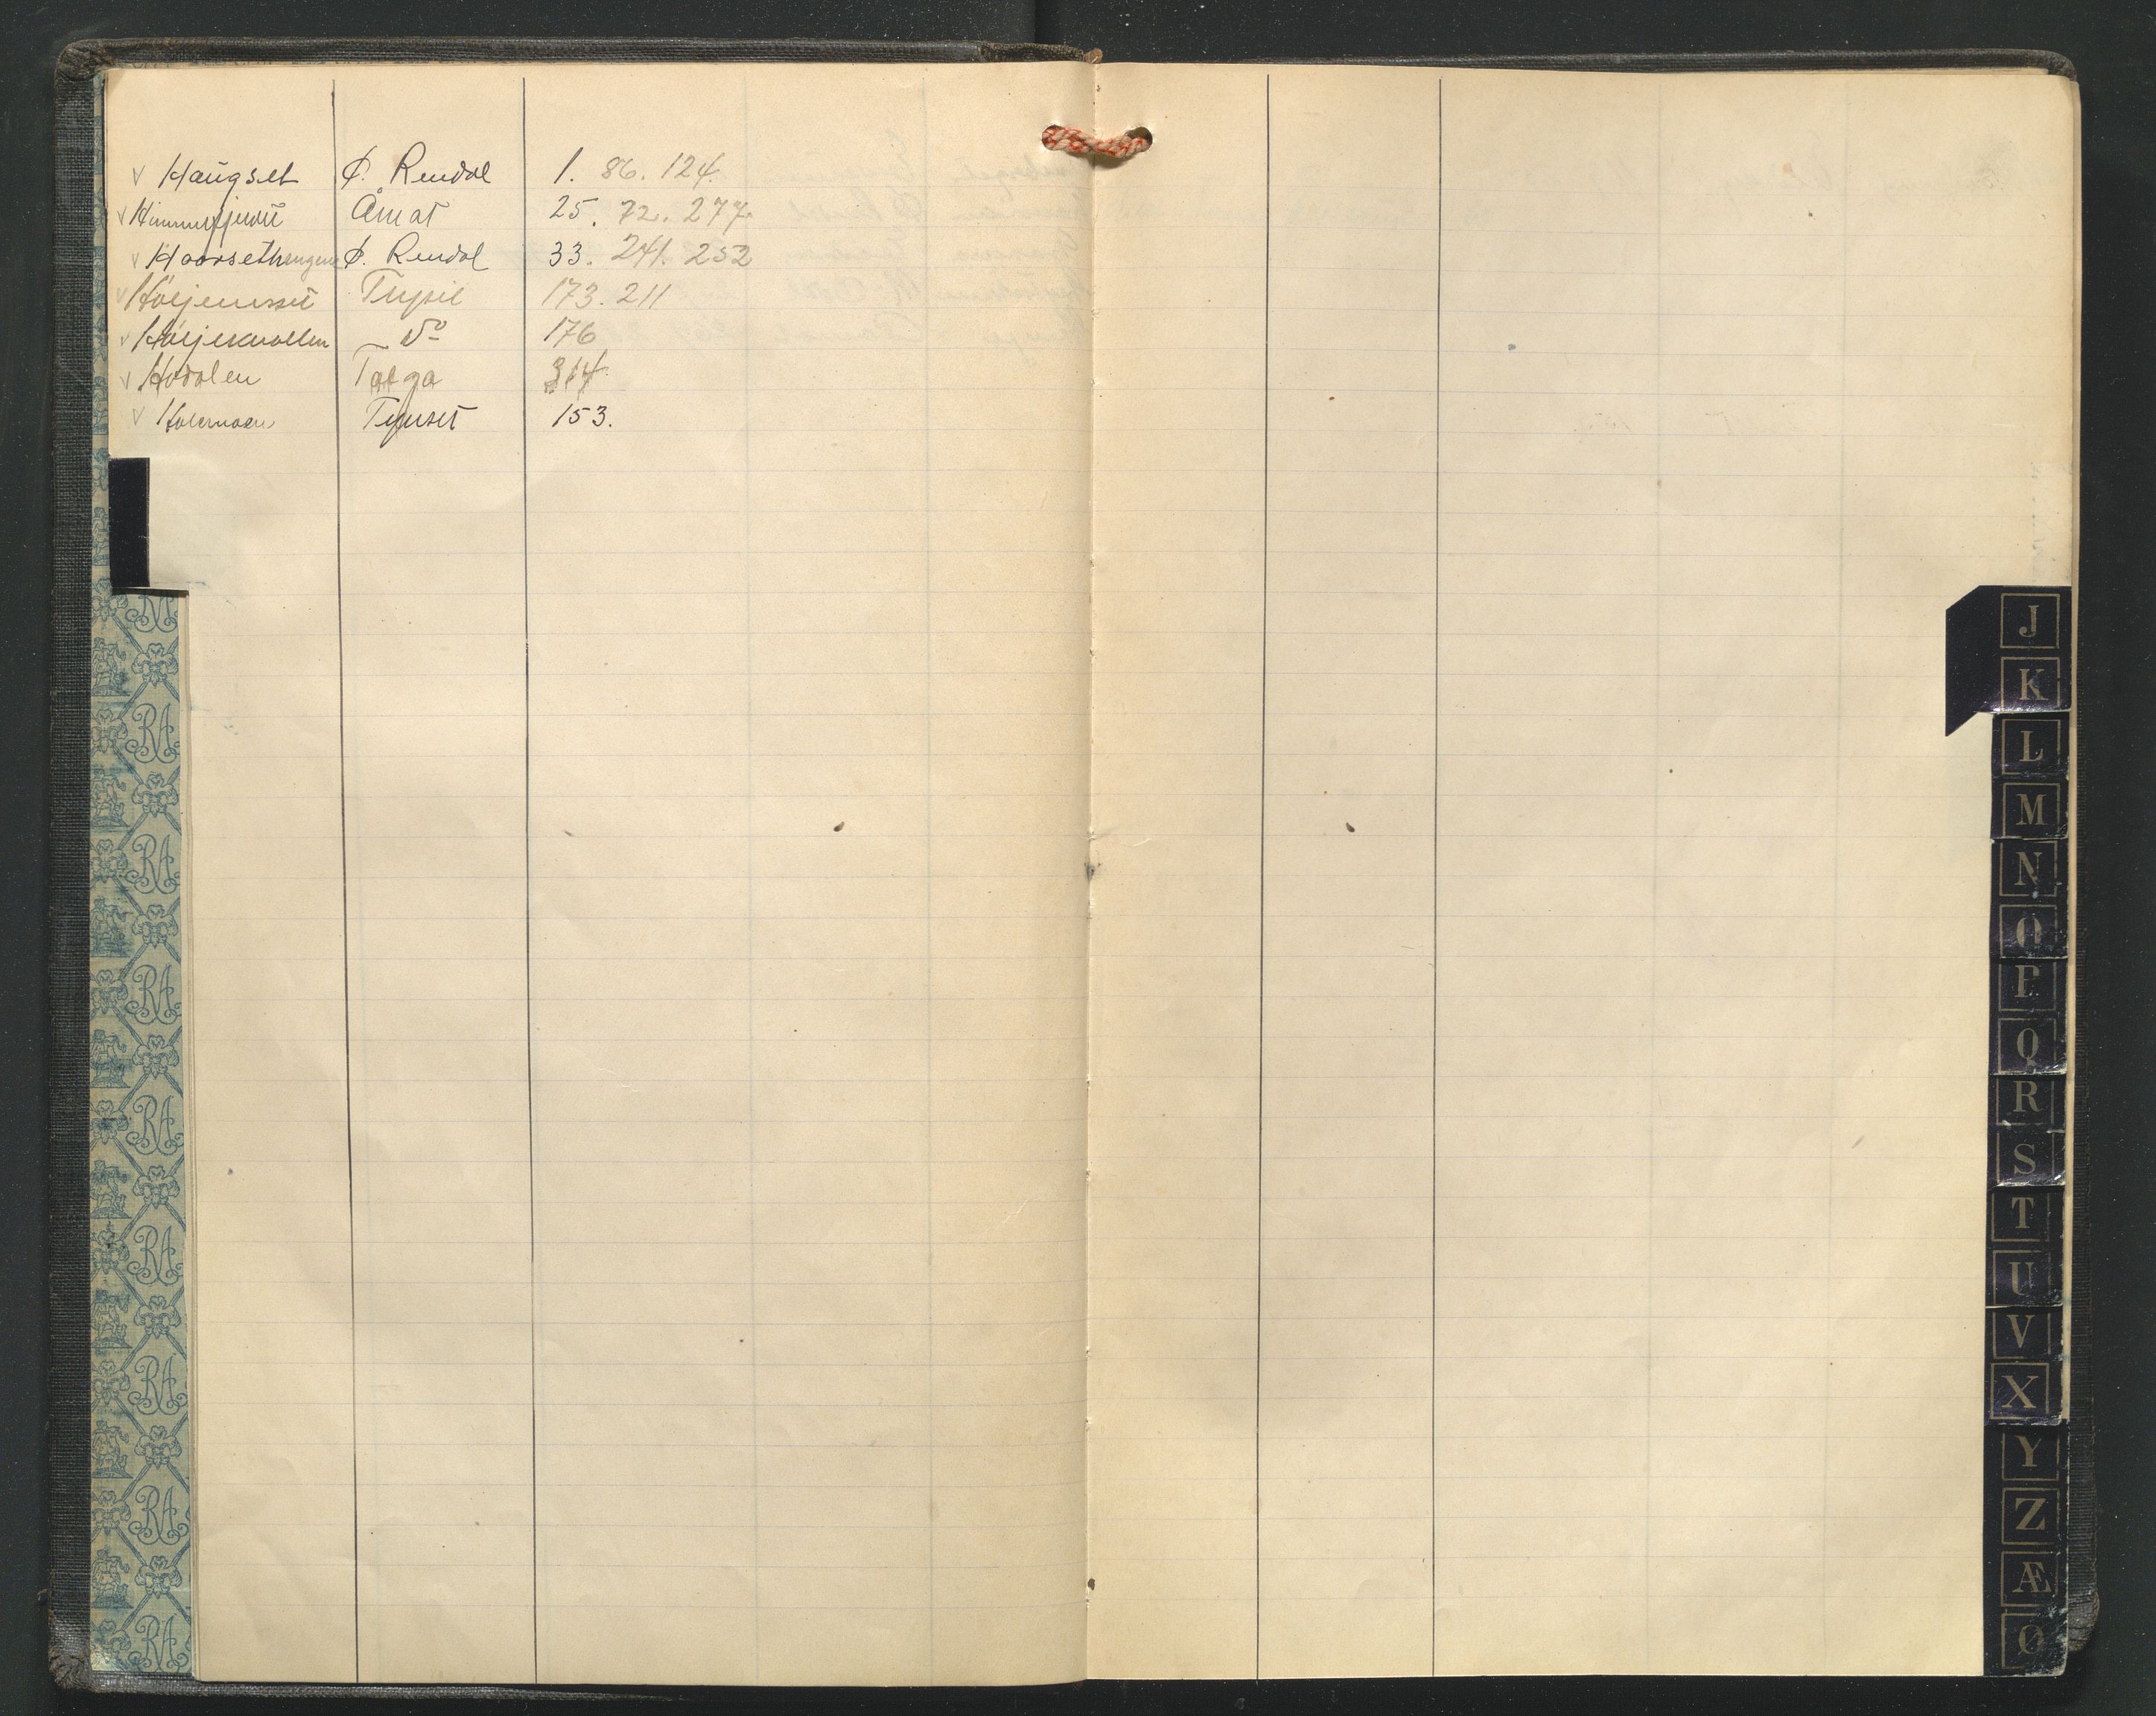 V Haugset Ø. Rendal 1. 86. 124.
V Åmot 25. 72. 277.
V Ø. Rendal 33. 241. 252
V Trysil 173. 211
V Do 176
V Hodalen Tolga 314.
V Holermoen Tynset 153.
J
K
L
M
N
O
P
Q
R
S
T
U
V
X
Y
Z
Æ
Ø